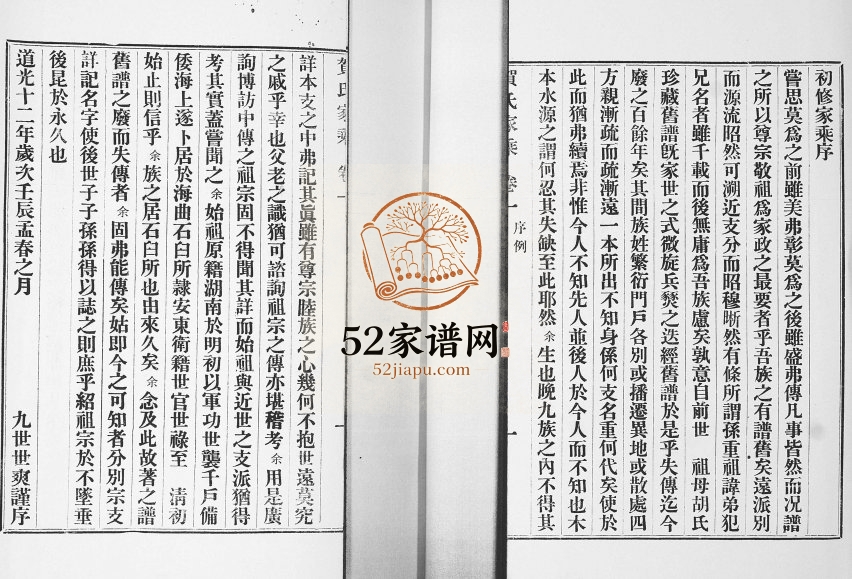 初修家乘序
嘗思莫爲之前雖美弗彰莫爲之後雖盛弗傳凡事皆然而况譜
之所以尊宗敬祖爲家政之最要者乎吾族之有譜舊矣遠派別
而源流昭然可溯近支分而昭穆晣然有條所謂孫重祖諱弟犯
兄名者雖千載而後無庸爲吾族慮矣孰意自前世 祖母胡氏
珍藏舊譜旣家世之式微旋兵燹之迭經舊譜於是乎失傳迄今
廢之百餘年矣其間族姓繁衍門戶各別或播遷異地或散處四
方親漸疏而疏漸遠一本所出不知身係何支名重何代矣使於
此而猶弗續焉非惟今人不知先人並後人於今人而不知也木
本水源之謂何忍其失缺至此耶然余生也晚九族之內不得其
賀氏家乘 卷一 序例
一
賀氏家乘 卷一
一
詳本支之中弗記其眞雖有尊宗睦族之心幾何不抱世遠莫究
之戚乎幸也父老之識猶可諮詢祖宗之傳亦堪稽考余用是廣
詢博訪中傳之祖宗固不得聞其詳而始祖與近世之支派猶得
考其實蓋嘗聞之余始祖原籍湖南於明初以軍功世襲千戶備
倭海上遂卜居於海曲石臼所隸安東衛籍世官世祿至 清初
始止則信乎余族之居石臼所也由來久矣余念及此故著之譜
舊譜之廢而失傳者余固弗能傳矣姑即今之可知者分別宗支
詳記名字使後世子子孫孫得以誌之則庶乎紹祖宗於不墜垂
後昆於永久也
道光十二年歲次壬辰孟春之月 九世世爽謹序
52家谱网
52jiapu.com